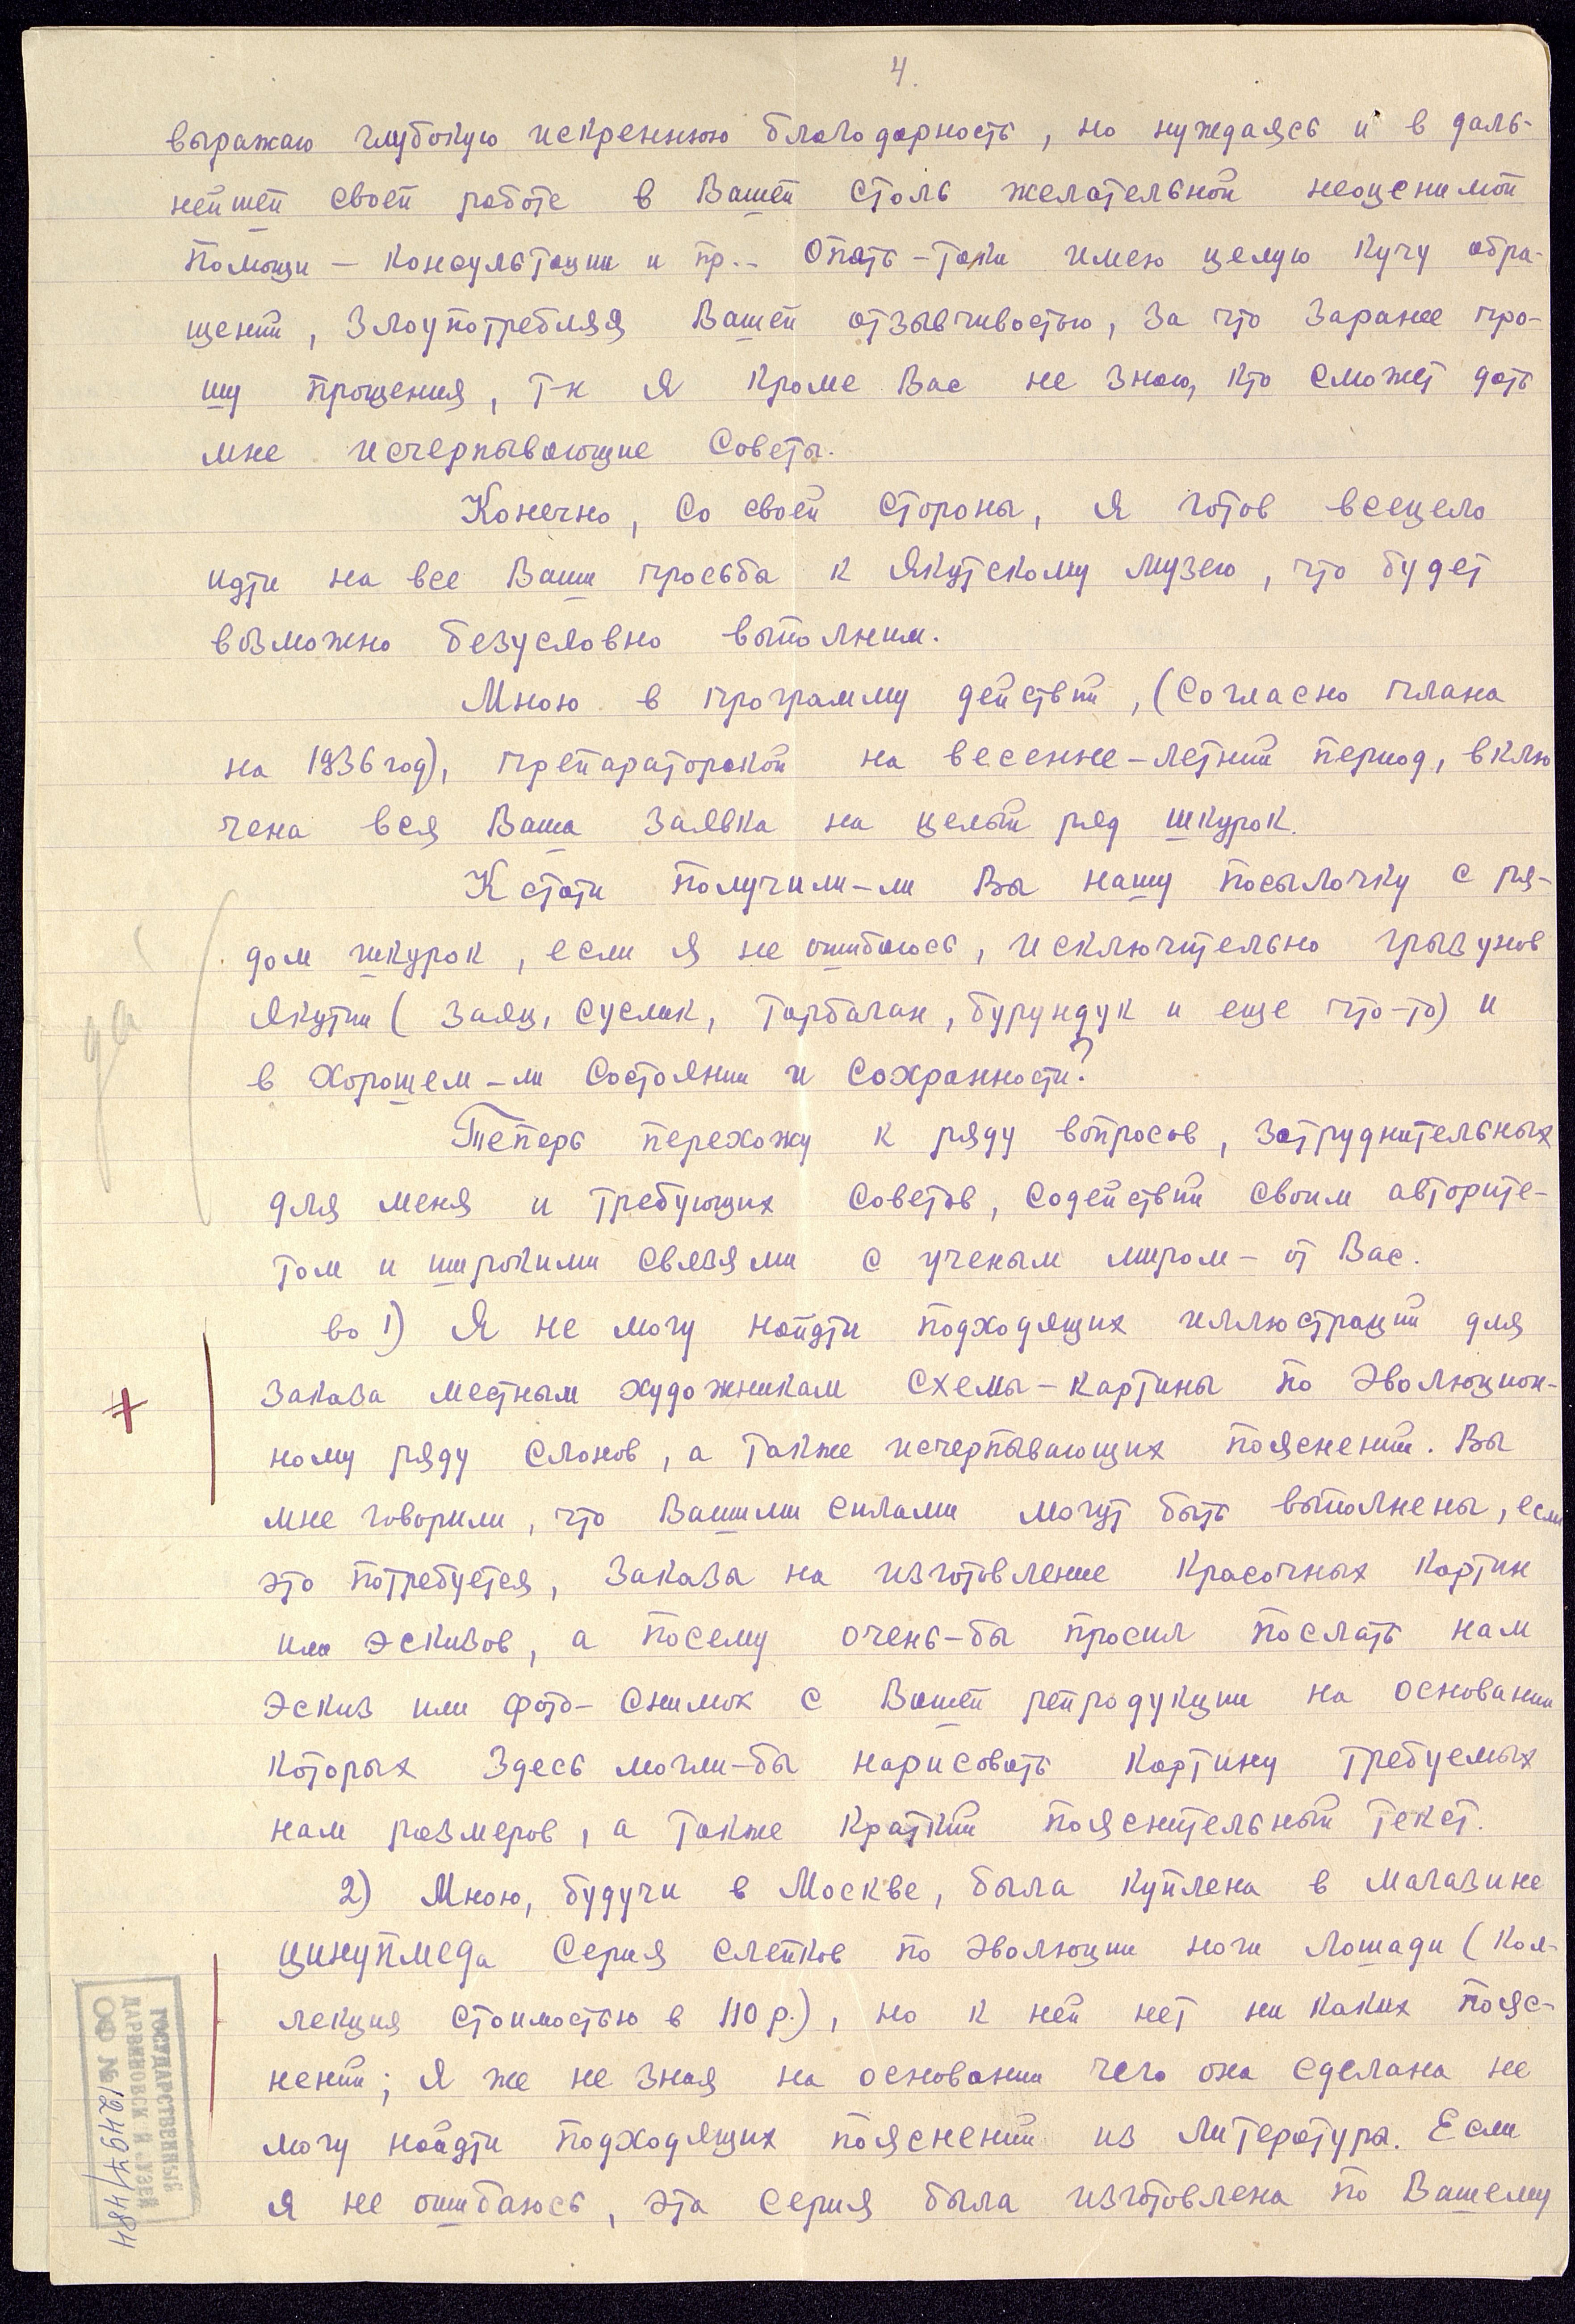 4.
выражаю глубокую искреннюю благодарность, но нуждаясь и в даль-
нейшей своей работе в Вашей столь желательной неоценимой
помощи — консультации и пр.. Опять-таки имею целую кучу обра-
щений, злоупотребляя Вашей отзывчивостью, за что заранее про-
шу прощения, т-к я кроме Вас не знаю, кто сможет дать
мне исчерпывающие советы.
Конечно, со своей стороны, я готов всецело
идти на все Ваши просьбы к Якутскому музею, что будет
возможно безусловно выполним.
Мною в программу действий, (согласно плана
на 1936 год), препараторской на весенне-летний период, вклю
чена вся Ваша заявка на целый ряд шкурок.
Кстати получили-ли Вы нашу посылочку с ря-
дом шкурок, если я не ошибаюсь, исключительно грызунов
Якутии (заяц, суслик, тарбаган, бурундук и еще что-то) и
в хорошем-ли состоянии и сохранности?
да
Теперь перехожу к ряду вопросов, затруднительных
для меня и требующих советов, содействий своим авторите-
том и широкими связями с ученым миром — от Вас.
во 1) Я не могу найти подходящих иллюстраций для
заказа местным художникам схемы-картины по эволюцион-
ному ряду слонов, а также исчерпывающих пояснений. Вы
мне говорили, что Вашими силами могут быть выполнены, если
это потребуется, заказы на изготовление красочных картин
или эскизов, а посему очень-бы просил послать нам
эскиз или фото-снимок с Вашей репродукции на основании
которых здесь могли-бы нарисовать картину требуемых
нам размеров, а также краткий пояснительный текст.
2) Мною, будучи в Москве, была куплена в магазине
цинупмеда серия слепков по эволюции ноги лошади (кол-
лекция стоимостью в 110 р.), но к ней нет ни каких пояс-
нений; я же не зная на основании чего она сделана не
могу найти подходящих пояснений из литературы. Если
я не ошибаюсь, эта серия была изготовлена по Вашему
ГОСУДАРСТВЕННЫЙ
ДАРВИНОВСКИЙ МУЗЕЙ
ОФ № 12497/484